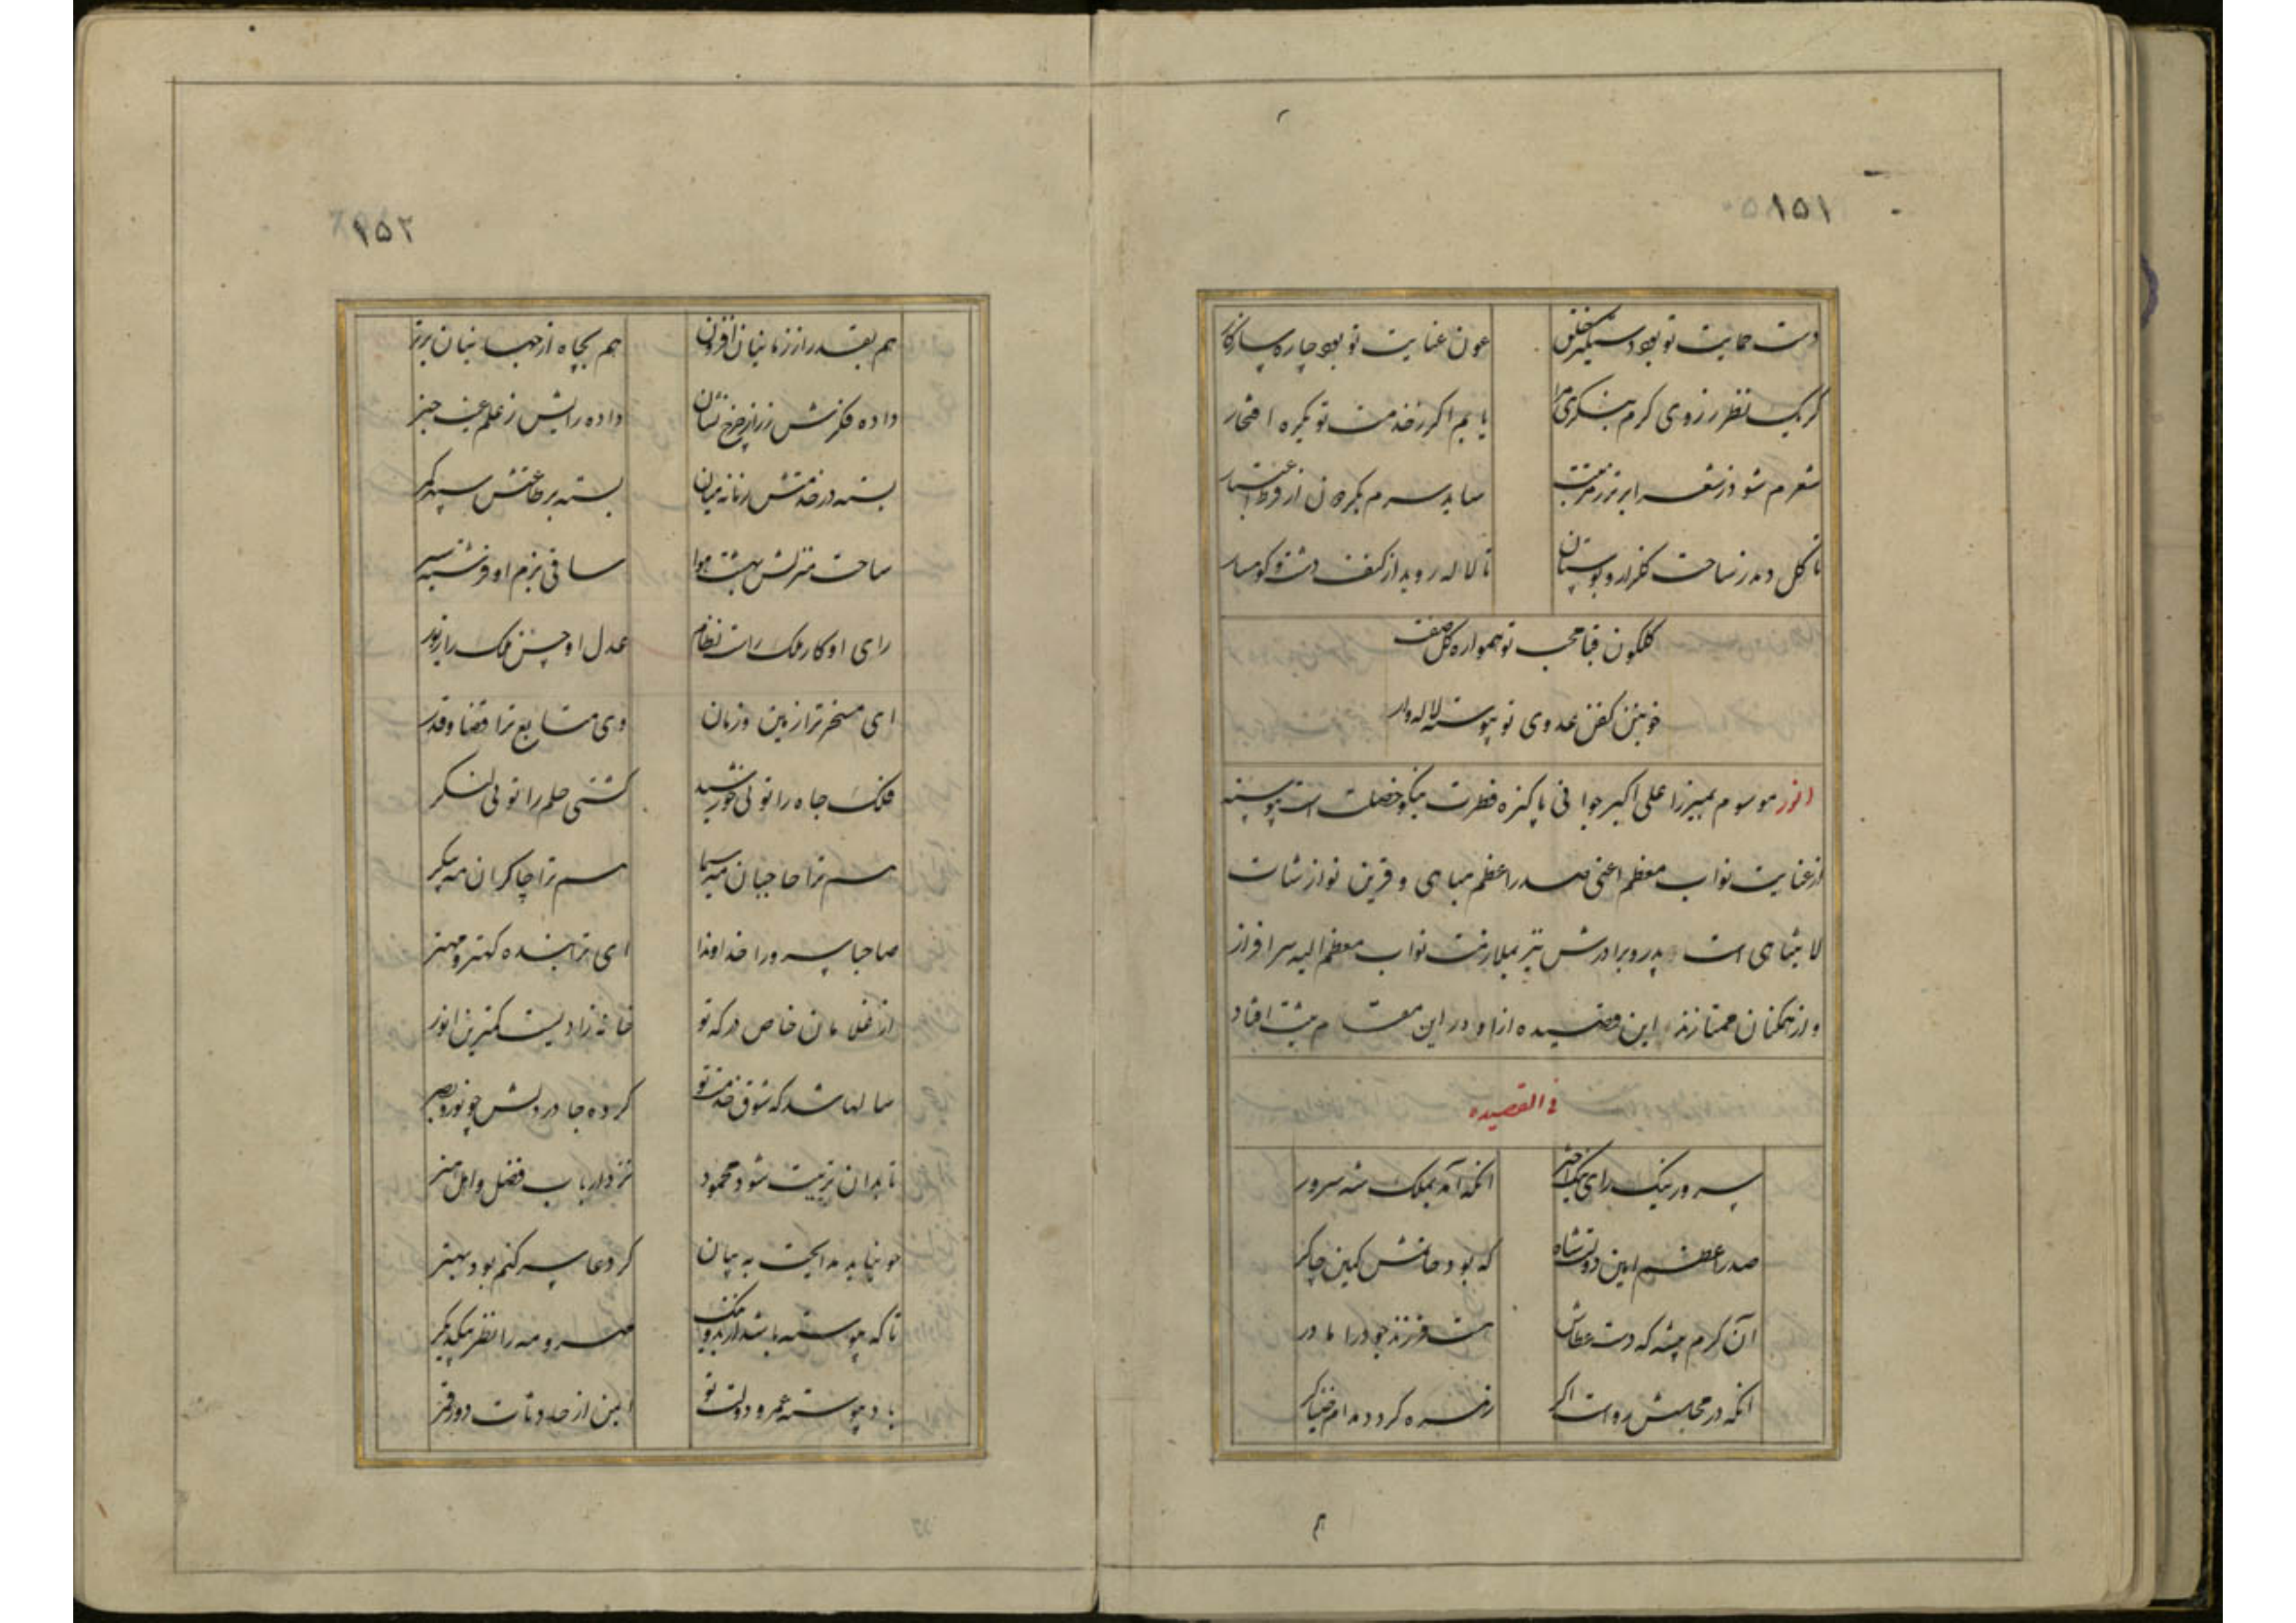 ۱۵۱
دست حمایت تو بود دستگیر خلق عون عنایت تو بود چاره ساز کار
گر یک نظر ز روی کرم بنگری مرا یابم اگر ز خدمت تو یکره افتخار
شعرم شود ز شعرا برتر ز مرتبت ساید سرم بکرات از فرط اعتبار
تا گل دمد ز ساحت گلزار و بوستان تا لاله روید از کنف دشت و کوهسار
گلگون قبا محب تو همواره گل صفت
خونین کفن عدوی تو پیوسته لاله وار
انور موسوم بمیرزا علی اکبر جوانی پاکیزه فطرت نیکو خصلت است پیوسته
از عنایت نواب معظم اعنی صدر اعظم مباهی و قرین نوازشات
لایتناهی است پدر و برادرش نیز بملازمت نواب معظم الیه سرافراز
و از همکنان ممتازند این قصیده از او در این مقام ثبت افتاد
فی القصیده
سرور نیک رای نیک اختر انکه آمد بملک شه سرور
صدر اعظم امین دولت شاه که بود خانش کمین چاکر
آن کرم پیشه که دست عطاش هست فرزند جود را مادر
انکه در مجلسش رواست اگر زهره گردد مدام خنیاگر
۱۵۲
هم بقدر از زمانیان افزون هم بجاه از جهانیان برتر
داده فکرتش ز راز چرخ نشان داده رایش ز علم غیب خبر
بسته در خدمتش زمانه میان بسته بر طاعتش سپهر کمر
ساحت منزلش بهشت هوا ساقی بزم او فرشته سیر
رای او کار ملک راست نظام عدل او حسن ملک را زیور
ای مسخر ترا زمین و زمان وی متابع ترا قضا و قدر
فلک جاه را توئی خورشید کشتی حلم را توئی لنگر
هم ترا حاجبان مه سیما هم ترا چاکران مه پیکر
صاحبا سرورا خداوندا ای ترا بنده کهتر و مهتر
از غلامان خاص درگه تو خانه زادیست کمترین انور
سالها شد که شوق خدمت تو کرده جا در دلش چو نور بصر
تا بدان تربیت شود محمود نزد ارباب فضل و اهل هنر
چون نیاید مدایحت به بیان گر دعا سر کنم بود بهتر
تا که پیوسته باشد از بد و نیک مهر و مه را نظر بیکدیگر
باد پیوسته عمر و دولت تو ایمن از حادثات دور قمر